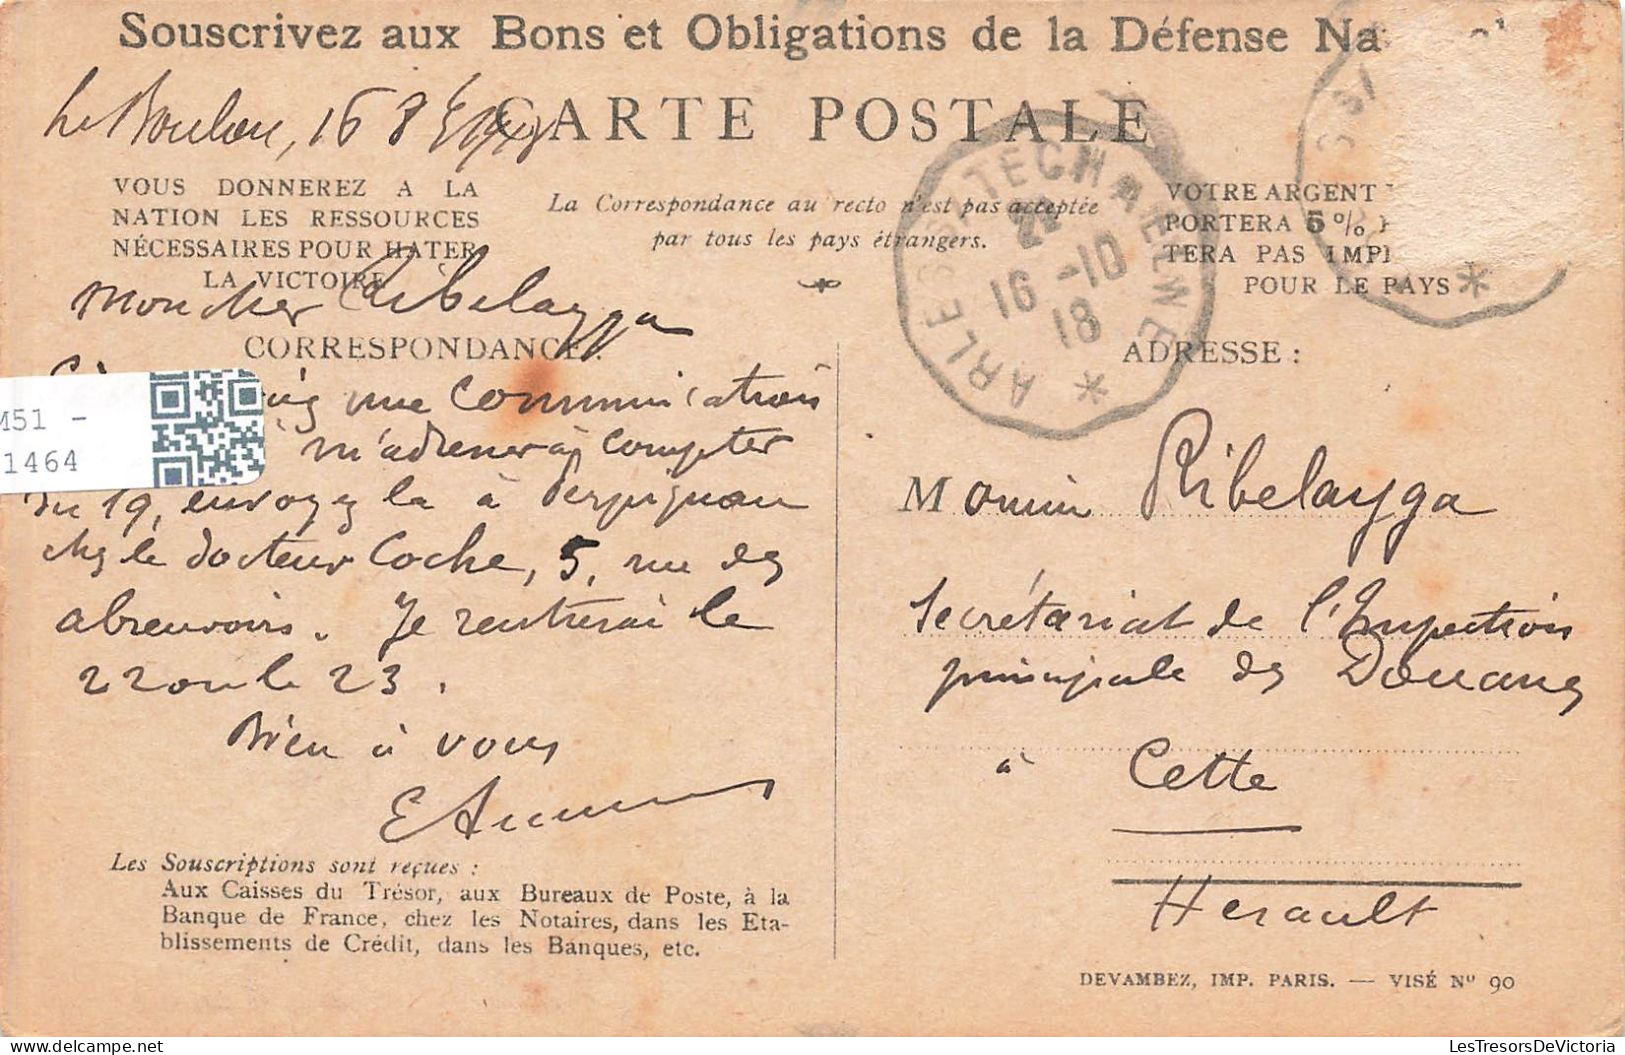 Souscrivez aux Bons et Obligations de la Défense Na
Le Boulou, 16 8bre 1918
CARTE POSTALE
VOUS DONNEREZ A LA
NATION LES RESSOURCES
NÉCESSAIRES POUR HATER
LA VICTOIRE
La Correspondance au recto n'est pas acceptée
par tous les pays étrangers.
VOTRE ARGENT
PORTERA 5%
TERA PAS IMP
POUR LE PAYS
ARLES S TECH A ELNE
22
16 -10
18
Mon cher Ribelayga
CORRESPONDANCE:
une communication
à m'adresser à compter
du 19, envoyez la à Perpignan
chez le docteur Coche, 5, rue des
abreuvoirs. Je rentrerai le
22 ou le 23.
Bien à vous
M51 -
1464
ADRESSE :
Monsieur Ribelayga
Secrétariat de l'Inspection
principale des Douanes
à Cette
Herault
Les Souscriptions sont reçues :
Aux Caisses du Trésor, aux Bureaux de Poste, à la
Banque de France, chez les Notaires, dans les Eta-
blissements de Crédit, dans les Banques, etc.
DEVAMBEZ, IMP. PARIS. — VISÉ No 90
LesTresorsDeVictoria